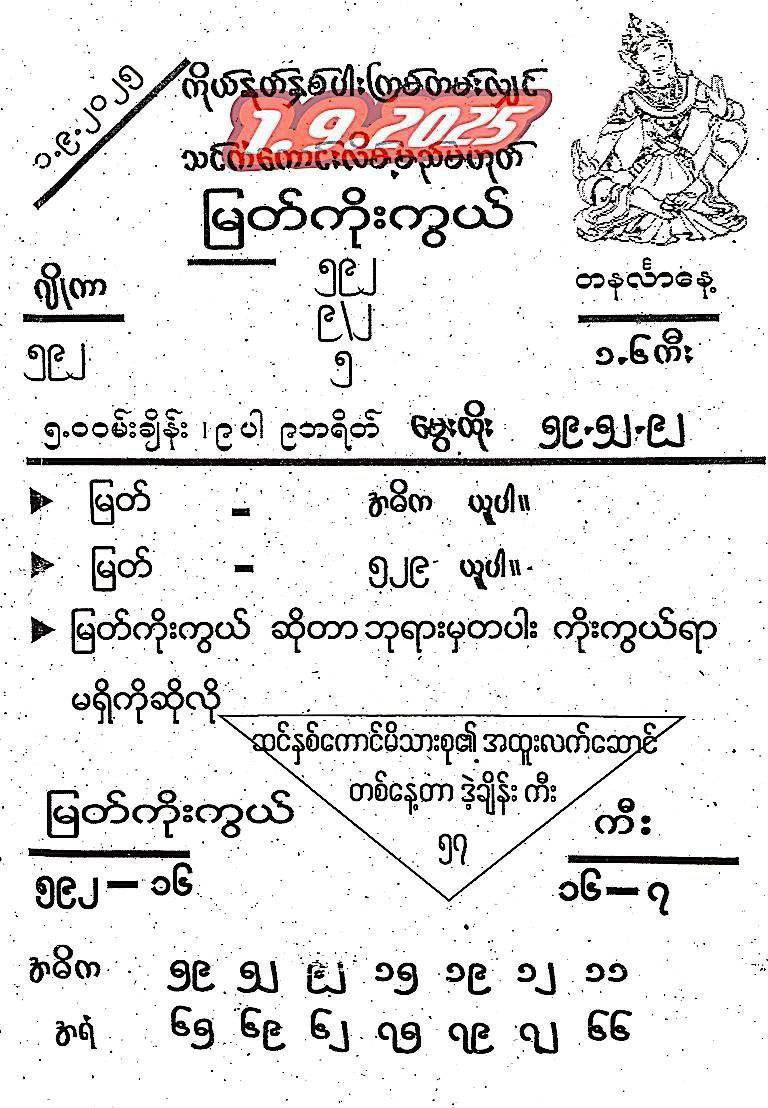 ၁.၉.၂၀၂၅
ကိုယ်နတ်နှစ်ပါးကြမ်တမ်းလျှင်
1.9.2025
သင်ကံကောင်းလိမ့်မည်မဟုတ်
မြတ်ကိုးကွယ်
ဂျိုကာ
၅၉၂
၅၉၂
၉\၂
၅
တနင်္လာနေ့
၁.၆ကီး
၅.၀ဝမ်းချိန်း ၊ ၉ပါ ၉ဘရိတ် မွေးထိုး ၅၉.၅၂.၉၂
မြတ် - အဓိက ယူပါ။
မြတ် - ၅၂၉ ယူပါ။
မြတ်ကိုးကွယ် ဆိုတာဘုရားမှတပါး ကိုးကွယ်ရာ
မရှိကိုဆိုလို
ဆင်နှစ်ကောင်မိသားစု၏ အထူးလက်ဆောင်
တစ်နေ့တာ ဒဲ့ချိန်း ကီး
၅၇
မြတ်ကိုးကွယ်
၅၉၂ — ၁၆
ကီး
၁၆—၇
အဓိက ၅၉ ၅၂ ၉၂ ၁၅ ၁၉ ၁၂ ၁၁
အရံ ၆၅ ၆၉ ၆၂ ၇၅ ၇၉ ၇၂ ၆၆